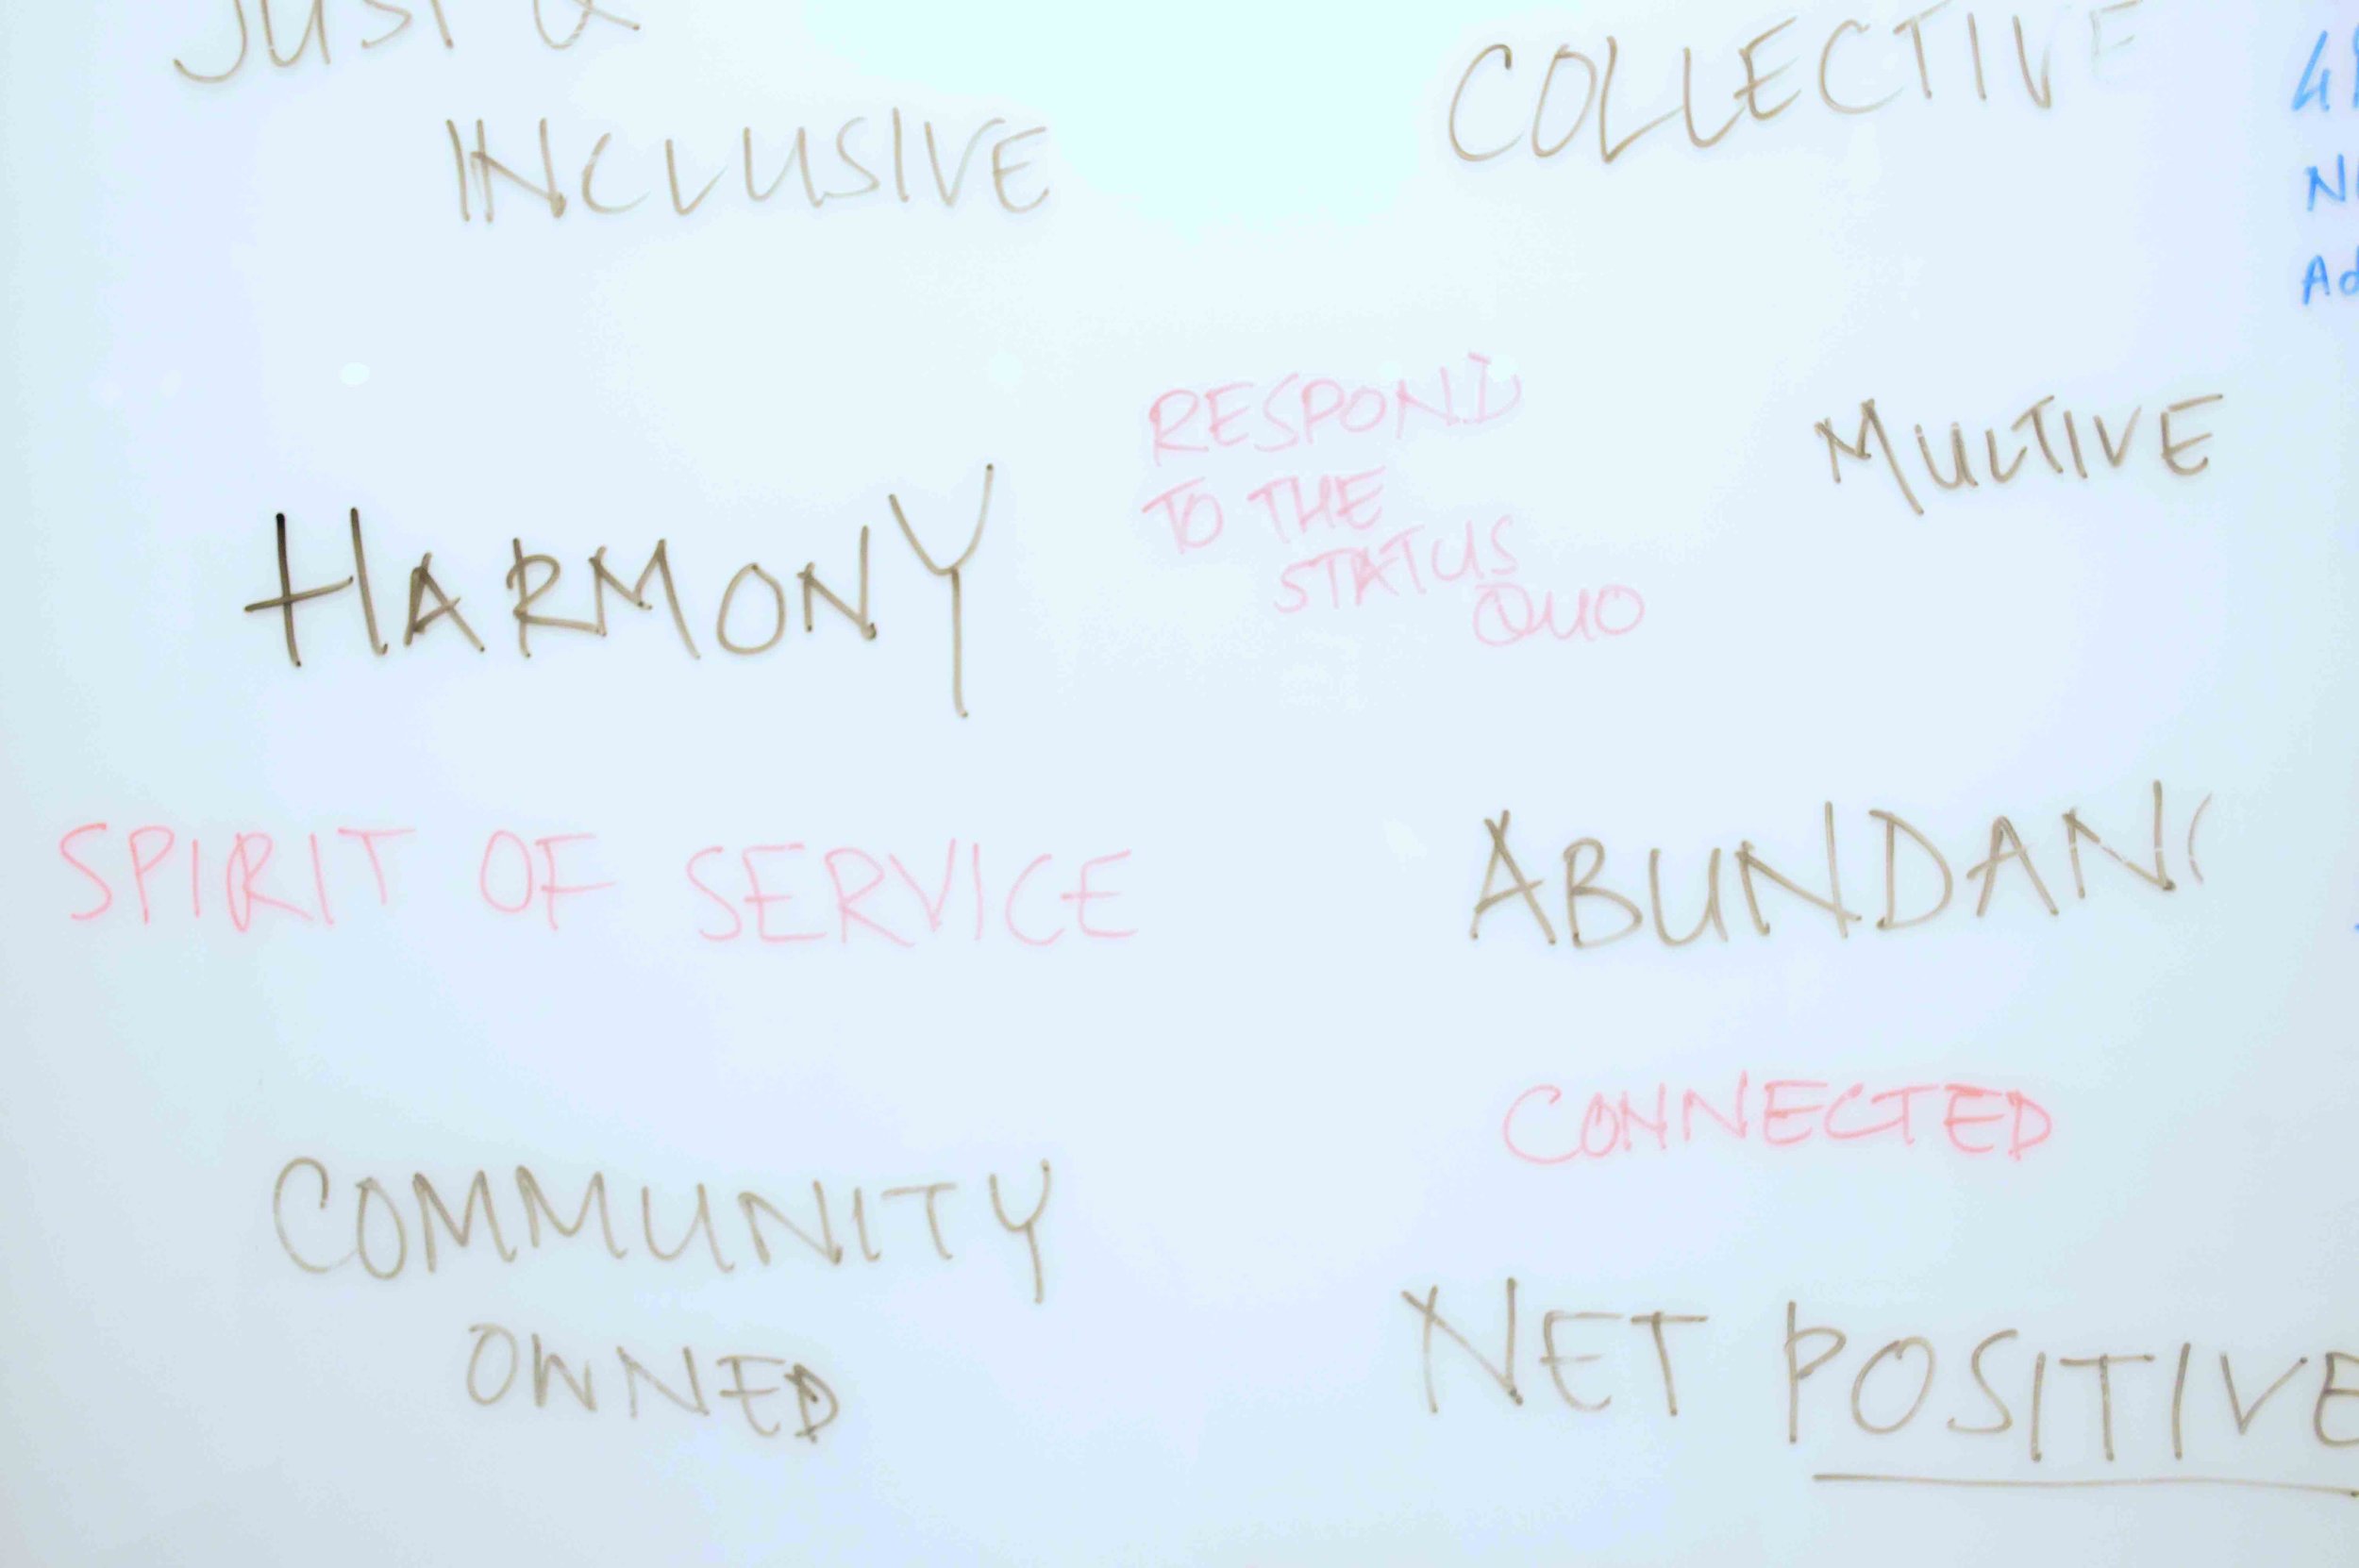 JUST &
INCLUSIVE
COLLECTIVE
RESPOND
TO THE
STATUS
QUO
MULTIVE
HARMONY
SPIRIT OF SERVICE
ABUNDAN
CONNECTED
COMMUNITY
OWNED
NET POSITIVE